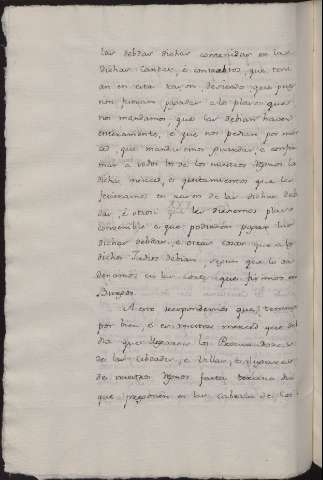 las debdas dichas contenidas en las
dichas cartas, é contratos, que tení
an en esta razon, deviendo que pues
non fuesen pagadas a los plazos que
nos mandamos que las debian haver
enteramente, é que nos pedian por mer
ced, que mandasemos guardar, é confir
mar á todos los de los nuestros Regnos la
dicha merced, é quitamiento que les
fecieramos en razon de las dichas deb
das, é otrosi que les diesemos plazo
convenible á que podiesen pagar las
dichas debdas, é otras cosas que á los
dichos Judios debian, segun que lo or
denamos en las cortes que ficimos en
Burgos.
A esto respondemos que tenemos
por bien, é en nuestra merced que del
dia que llegaren los Procuradores
de las Cibdades, é Villas, é Lugares
de nuestros Regnos fasta treinta dias
que pregonen en las cabezas de los